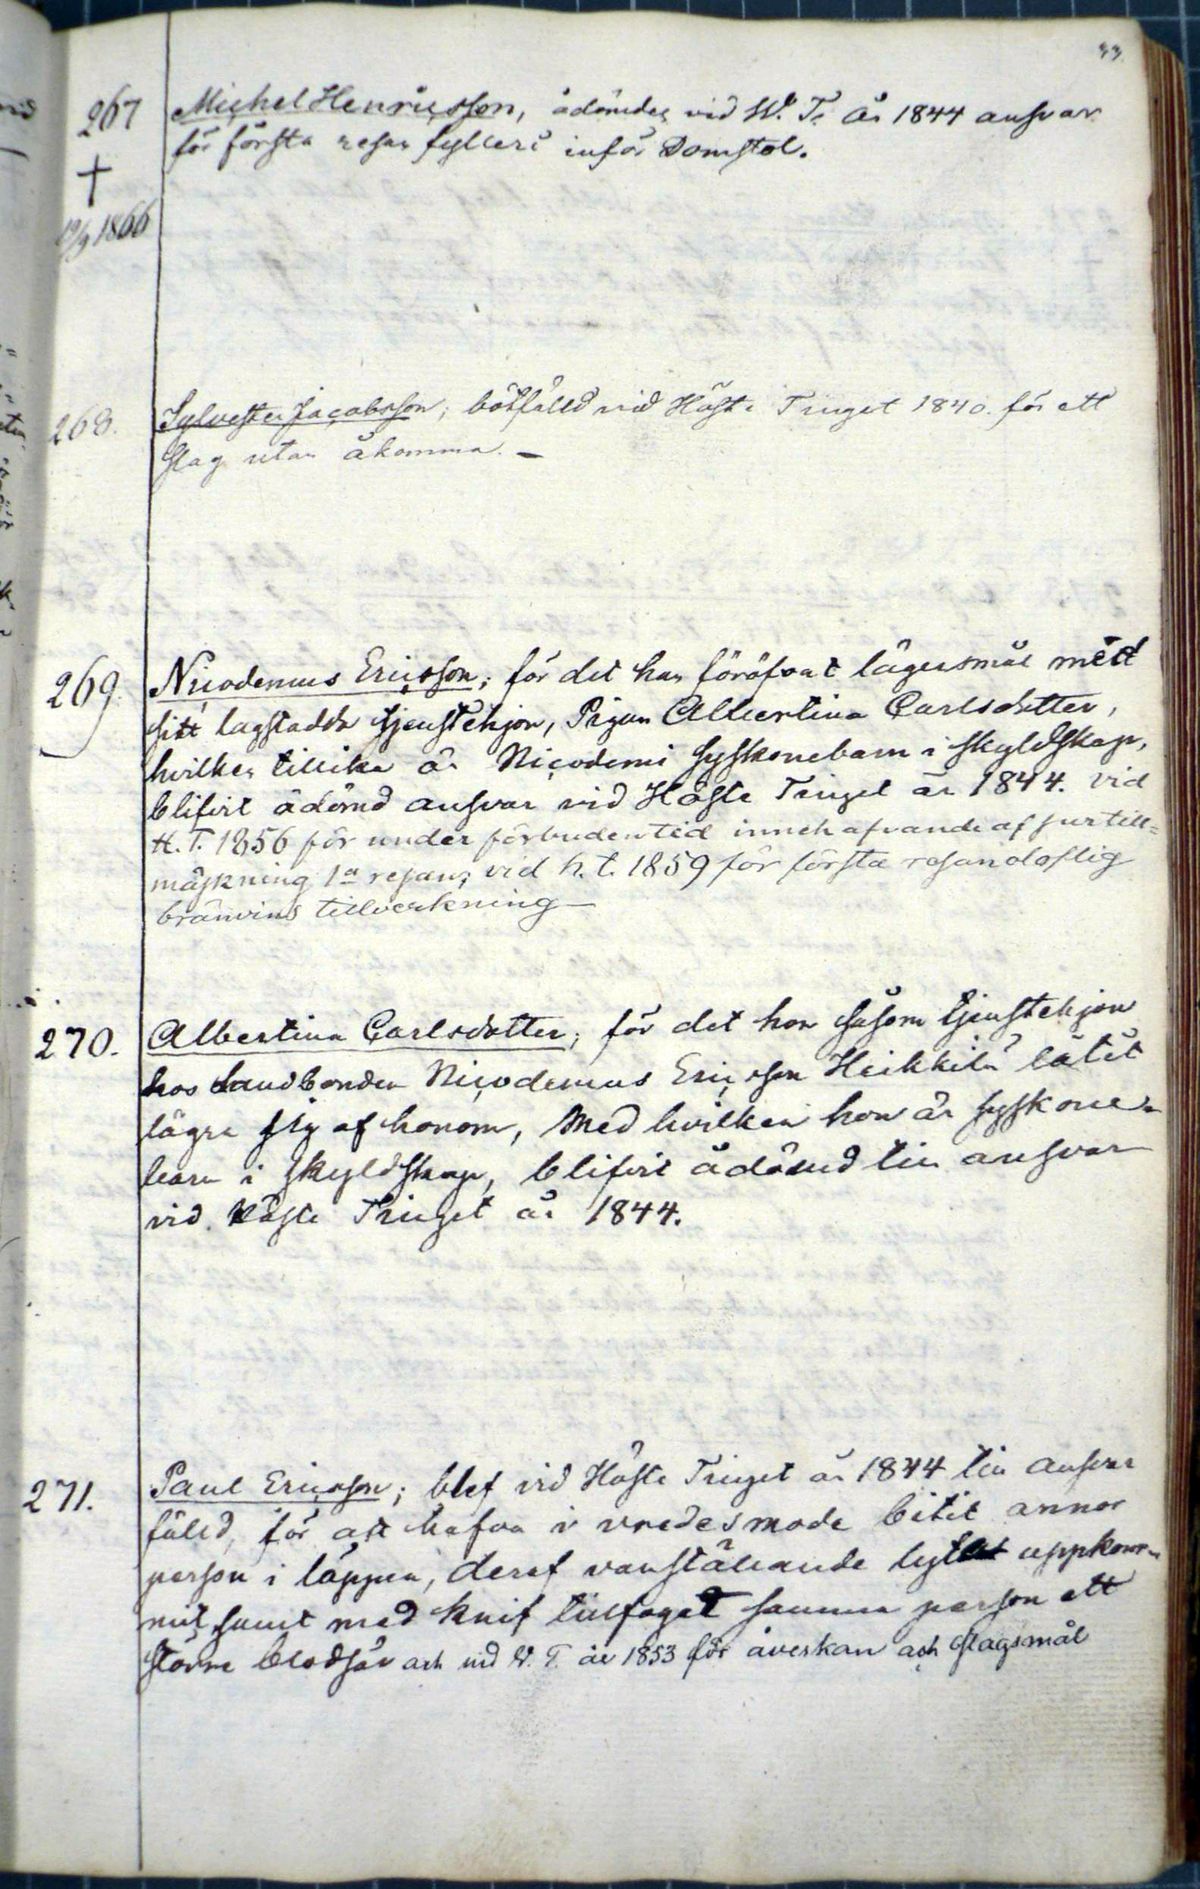 33
267 Michel Henricsson, ådömdes vid W. T. år 1844 ansvar
för första resan fylleri inför Domstol.
†
19/9 1866
268. Sylvester Jacobsson, bötfälld vid Höste Tinget 1840. för ett
slag utan åkomma. –
269. Nicodemus Ericsson, för det han föröfvat lägersmål med
sitt lagstadda tjenstehjon, Pigan Albertina Carlsdotter,
hvilken tillika är Nicodemi syskonebarn i skyldskap,
blifvit ådömd ansvar vid Höste Tinget år 1844. vid
H. T. 1856 för under förbuden tid innehafvande af surtill=
mäskning 1a resan; vid h. t. 1859 för första resan oloflig
bränvins tillverkning –
270. Albertina Carlsdotter, för det hon såsom tjenstehjon
hos Landbonden Nicodemus Ericsson Heikkilä låtit
lägra sig af honom, med hvilken hon är syskone-
barn i skyldskap, blifvit ådömd till ansvar
vid Höste Tinget år 1844.
271. Paul Ericsson; blef vid Höste Tinget år 1844 till ansvar
fälld, för att hafva i vredesmode bitit annor
person i läppen, deraf vanställande lyte uppkom-
mit, samt med knif tillfogat samma person ett
större blodsår och vid V. T. år 1853 för åverkan och slagsmål